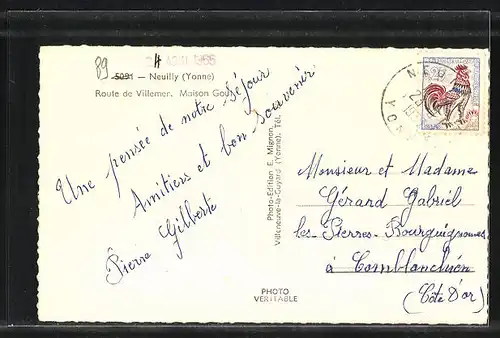 89
5091 — Neuilly (Yonne)
Route de Villemer. Maison
Une pensée de notre séjour
Amitiers et bon souvenir
Pierre Gilberte
Photo-Edition E. Mignon
Villeneuve-la-Guyard (Yonne), Tél.
PHOTO
VERITABLE
Monsieur et Madame
Gérard Gabriel
les Pierres Bourguignonnes
à Comblanchien
(Côte d'or)